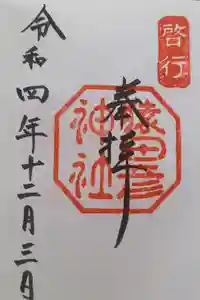 啓行
奉拝
猿田彦
神社
令和四年十二月三日